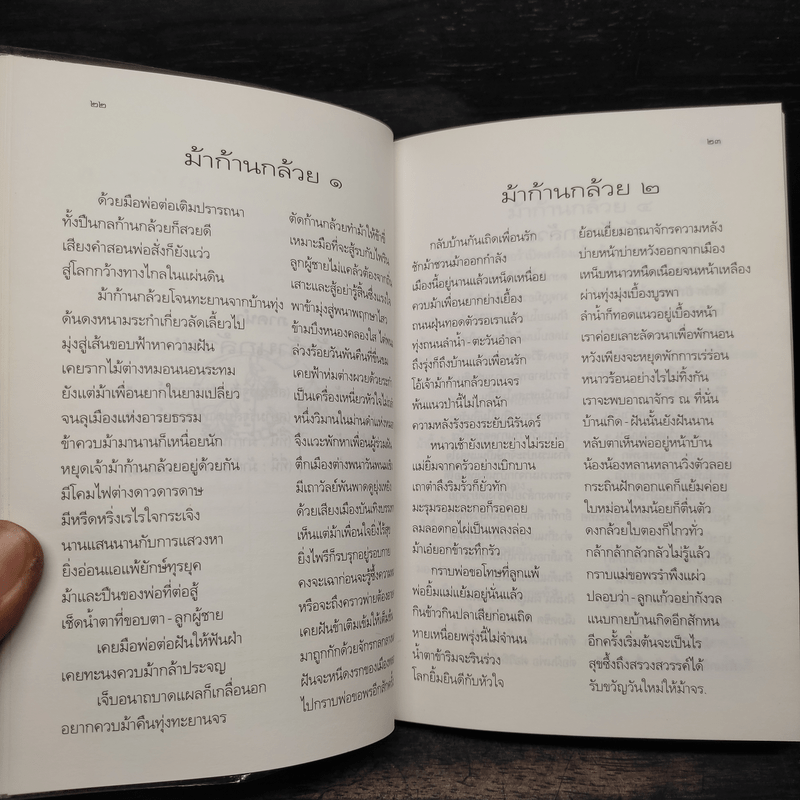 ๒๒
ม้าก้านกล้วย ๑
ด้วยมือพ่อต่อเติมปรารถนา
ทั้งปืนกลก้านกล้วยก็สวยดี
เสียงคำสอนพ่อสั่งก็ยังแว่ว
สู่โลกกว้างทางไกลในแผ่นดิน
ม้าก้านกล้วยโจนทะยานจากบ้านทุ่ง
ด้นดงหนามระกำเกี่ยวลัดเลี้ยวไป
มุ่งสู่เส้นขอบฟ้าหาความฝัน
เคยรากไม้ต่างหมอนนอนระทม
ยังแต่ม้าเพื่อนยากในยามเปลี่ยว
จนลุเมืองแห่งอารยธรรม
ข้าควบม้ามานานก็เหนื่อยนัก
หยุดเจ้าม้าก้านกล้วยอยู่ด้วยกัน
มีโคมไฟต่างดาวดารดาษ
มีหรีดหริ่งเรไรใจกระเจิง
นานแสนนานกับการแสวงหา
ยิ่งอ่อนแอแพ้ยักษ์ทุรยุค
ม้าและปืนของพ่อที่ต่อสู้
เช็ดน้ำตาที่ขอบตา - ลูกผู้ชาย
เคยมือพ่อต่อฝันให้ฟันฝ่า
เคยทะนงควบม้ากล้าประจญ
เจ็บอนาถบาดแผลก็เกลื่อนอก
อยากควบม้าคืนทุ่งทะยานจร
ตัดก้านกล้วยทำม้าให้ข้าขี่
เหมาะมือที่จะสู้รบกับไพริน
ลูกผู้ชายไม่แคล้วต้อง
เสาะและสู้อย่ารู้สิ้นซึ่ง
พาข้ามุ่งสู่พนาพฤกษา
ข้ามบึงหนองคลองใส
ล่วงร้อยวันพันคืนที่ขื่นขม
เคยฟ้าห่มต่างผวยด้วย
เป็นเครื่องเหนี่ยวหัวใจ
หนึ่งวิมานในม่านดำ
จึงแวะพักหาเพื่อนผู้ร่วม
ตึกเมืองต่างพนาวัน
มีเถาวัลย์พันพาดดูยุ่งเหยิง
ด้วยเสียงเมืองบันเทิง
เห็นแต่ม้าเพื่อนใจยิ่งไร้สุข
ยิ่งไพรีก็รบรุกอยู่รอบกาย
คงจะเฉาก่อนจะรู้ซึ้งความ
หรือจะถึงคราวพ่ายต้อง
เคยฝันข้าเติมเข็มให้เต็ม
มาถูกกักด้วยจักรกล
ฝันจะหนีดงรกของเมือง
ไปกราบพ่อขอพรอีกสักครั้ง
๒๓
ม้าก้านกล้วย ๒
กลับบ้านกันเถิดเพื่อนรัก
ชักม้าชวนม้าออกกำลัง
เมืองนี้อยู่นานแล้วเหน็ดเหนื่อย
ควบม้าเพื่อนยากย่างเยื้อง
ถนนฝุ่นทอดตัวรอเราแล้ว
ทุ่งถนนลำนำ - ตะวันอำลา
ถึงรุ่งก็ถึงบ้านแล้วเพื่อนรัก
โอ้เจ้าม้าก้านกล้วยวเนจร
พ้นแนวป่านี้ไม่ไกลนัก
ความหลังรังรองระยับนิรันดร์
หนาวเช้ายังเหยาะย่างไม่ระย่อ
แม่ยิ้มจากครัวอย่างเบิกบาน
เถาตำลึงริมรั้วก็ยั่วทัก
มะรุมรอมะละกอก็รอคอย
ลมลอดกอไผ่เป็นเพลงล่อง
ม้าเอ๋ยอกข้าระทึกรัว
กราบพ่อขอโทษที่ลูกแพ้
พ่อยิ้มแม่แย้มอยู่นั่นแล้ว
กินข้าวกินปลาเสียก่อนเถิด
หายเหนื่อยพรุ่งนี้ไม่จำนน
น้ำตาข้าริมจะรินร่วง
โลกยิ้มยินดีกับหัวใจ
ย้อนเยี่ยมอาณาจักรความหลัง
บ่ายหน้าบ่ายหวังออกจากเมือง
เหน็บหนาวหนืดเนือยจนหน้าเหลือง
ผ่านทุ่งมุ่งเบื้องบูรพา
ลำน้ำก็ทอดแนวอยู่เบื้องหน้า
เราค่อยเลาะลัดวนาเพื่อพักนอน
หวังเพียงจะหยุดพักการเร่ร่อน
หนาวร้อนอย่างไรไม่ทิ้งกัน
เราจะพบอาณาจักร ณ ที่นั่น
บ้านเกิด - ฝันนั้นยังฝันนาน
หลับตาเห็นพ่ออยู่หน้าบ้าน
น้องน้องหลานหลานวิ่งตัวลอย
กระถินฝักดอกแคก็แย้มค่อย
ใบหม่อนไหมน้อยก็ตื่นตัว
ดงกล้วยใบตองก็ไกวทั่ว
กล้ากล้ากลัวกลัวไม่รู้แล้ว
กราบแม่ขอพรรำพึงแผ่ว
ปลอบว่า - ลูกแก้วอย่ากังวล
แนบกายบ้านเกิดอีกสักหน
อีกครั้งเริ่มต้นจะเป็นไร
สุขซึ้งถึงสรวงสวรรค์ได้
รับขวัญวันใหม่ให้ม้าจร.